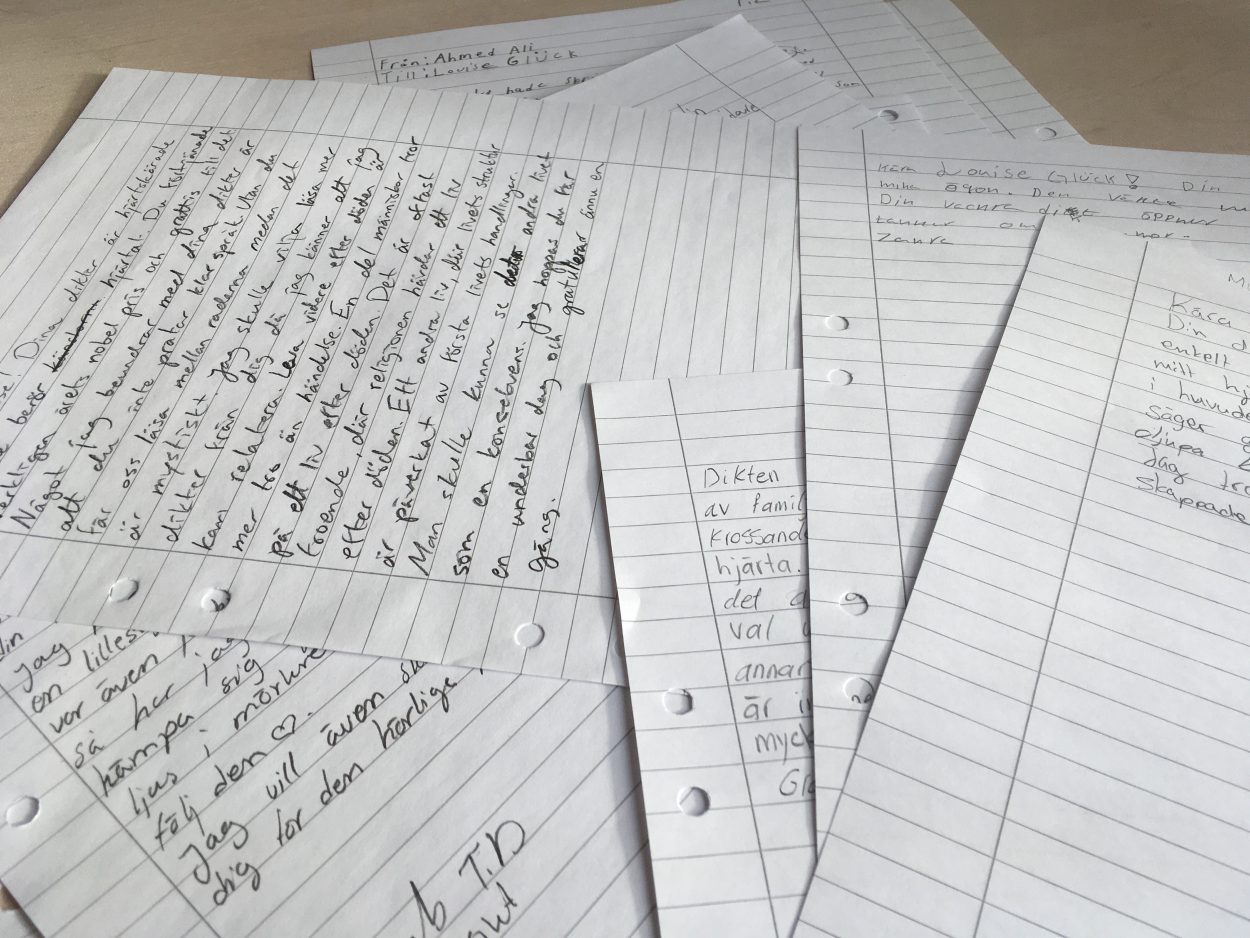 Från: Ahmed Ali
Till: Louise Glück
hade
Dina dikter är hjärtskärande
berör hjärtat. Du förtjänade
verkligen årets nobel pris och grattis till det
Något jag beundrar med dina dikter är
att du inte pratar klar språk. Utan du
får oss läsa mellan raderna medan det
är mystiskt. Jag skulle vilja läsa mer
dikter från dig då jag känner att jag
kan relatera. Leva vidare efter döden är
mer tro än händelse. En del människor tror
på ett liv efter döden. Det är oftast
troende, där religionen hävdar ett liv
efter döden. Ett andra liv, där livets struktur
är påverkat av första livets handlingar.
Man skulle kunna se andra livet
som en konsekvens. Jag hoppas du har
en underbar dag och gratulerar ännu en
gång.
Kära Louise Glück! Din
mina ögon. Den väkte
Din vackra dikt öppner
tanner om
Kära
Din d
enkelt
milt hj
i huvude
säger
djupa
Jag tro
skapade
Dikten
av famil
krossand
hjärta.
det
val
annar
är i
myck
Gr
din
Jag
en lilles
var även
så har jag
kämpa sig
ljus i mörkre
följ den ♡.
Jag vill även
dig för den härlige
T.D